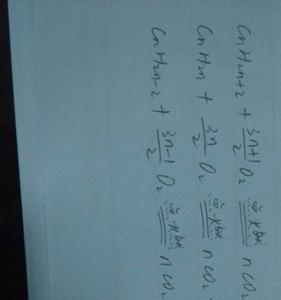 CnH2n+2 + 3n+1/2 O2 点燃 nCO2
CnH2n + 3n/2 O2 点燃 nCO2
CnH2n-2 + 3n-1/2 O2 点燃 nCO2